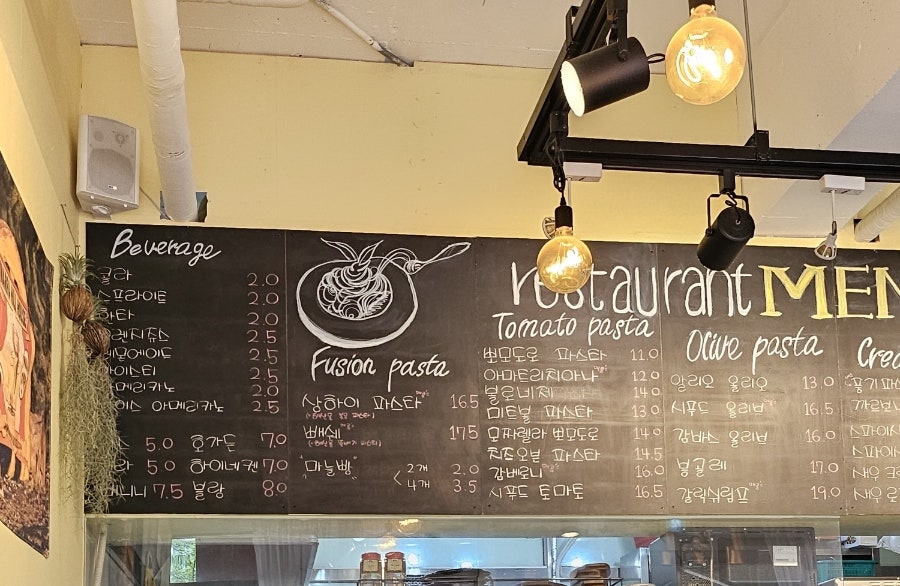 Beverage
콜라 2.0
스프라이트 2.0
환타 2.0
오렌지쥬스 2.5
레모에이드 2.5
아이스티 2.5
아메리카노 2.0
아이스 아메리카노 2.5
5.0 호가든 7.0
5.0 하이네켄 7.0
7.5 블랑 8.0
Fusion pasta
상하이 파스타 16.5
빼쉐 17.5
"마늘빵" < 2개 2.0
4개 3.5
restaurant MEN
Tomato pasta
뽀모도로 파스타 11.0
아마트리치아나 12.0
볼로네제 14.0
미트볼 파스타 13.0
모짜렐라 뽀모도로 14.0
치즈오븐 파스타 14.5
감베로니 16.0
시푸드 토마토 16.5
Olive pasta
알리오 올리오 13.0
시푸드 올리브 16.5
감바스 올리브 16.0
봉골레 17.0
갈릭쉬림프 19.0
Crea